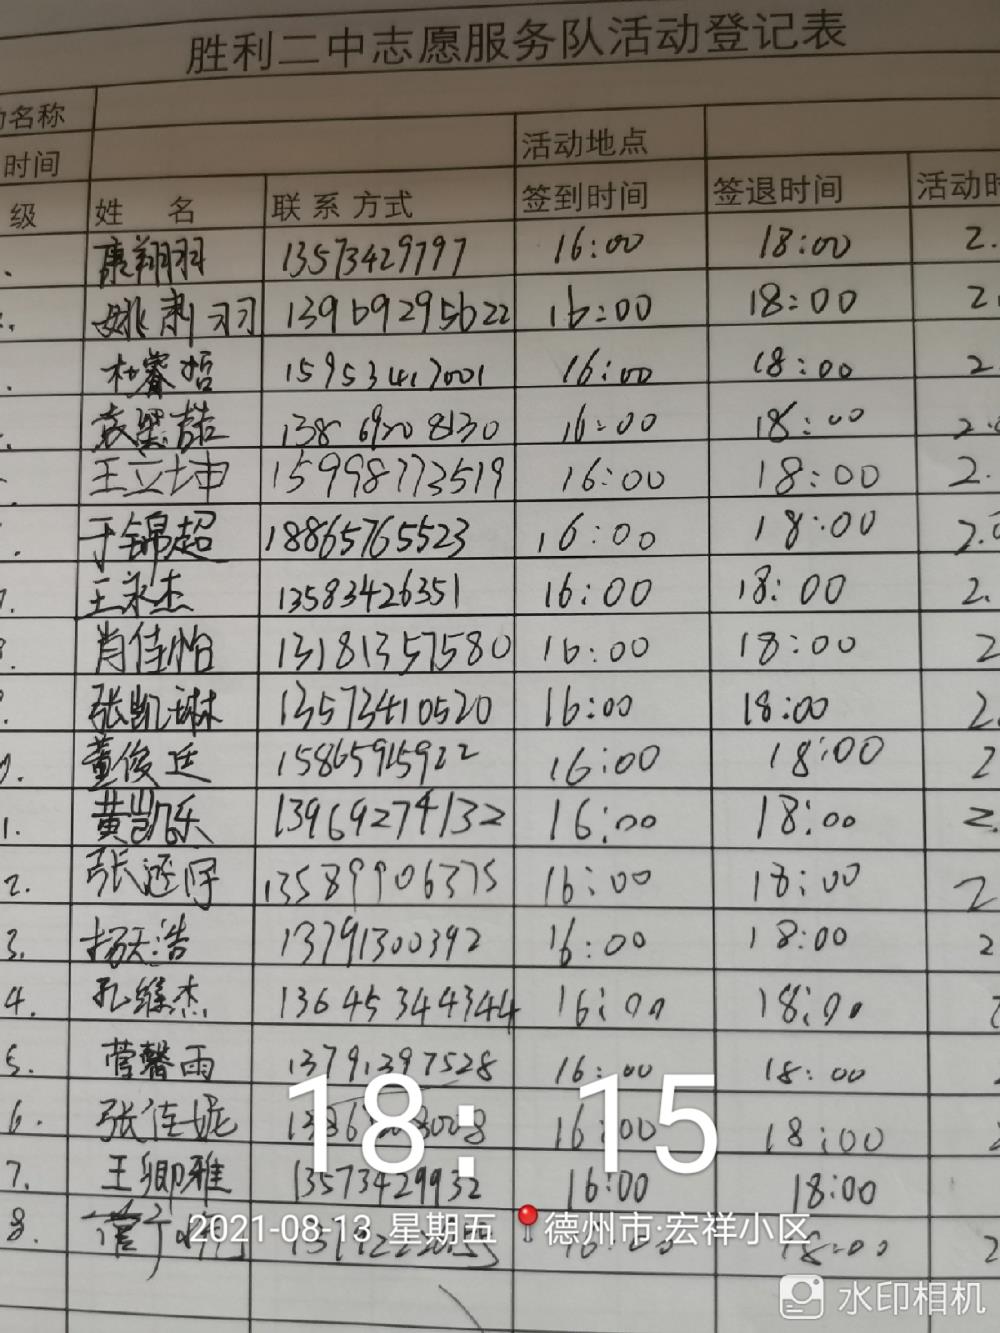 胜利二中志愿服务队活动登记表
动名称
时间 活动地点
级 姓 名 联系方式 签到时间 签退时间 活动时
康翔羽 13573429797 16:00 18:00 2.
姚荆羽 13969295622 16:00 18:00 2.
杜睿哲 15953417001 16:00 18:00 2
袁梁喆 13869208130 16:00 18:00 2.
王立坤 15998773519 16:00 18:00 2.
于锦超 18865765523 16:00 18:00 2.0
7. 王永杰 13583426351 16:00 18:00 2.
肖佳怡 13181357580 16:00 18:00 2
张凯琳 13573410520 16:00 18:00 2.
0. 董俊廷 15865915922 16:00 18:00 2
1. 黄凯乐 13969274132 16:00 18:00 2.
2. 张 13589906375 16:00 18:00 2
3. 杨天浩 13791300392 16:00 18:00 2
4. 孔维杰 13645344344 16:00 18:00
5. 菅馨雨 13791397528 16:00 18:00
6. 张佳妮 16:00 18:00
7. 王卿雅 13573429932 16:00 18:00
8. 16:00 18:00 2
18:15
2021-08-13 星期五 德州市·宏祥小区
水印相机